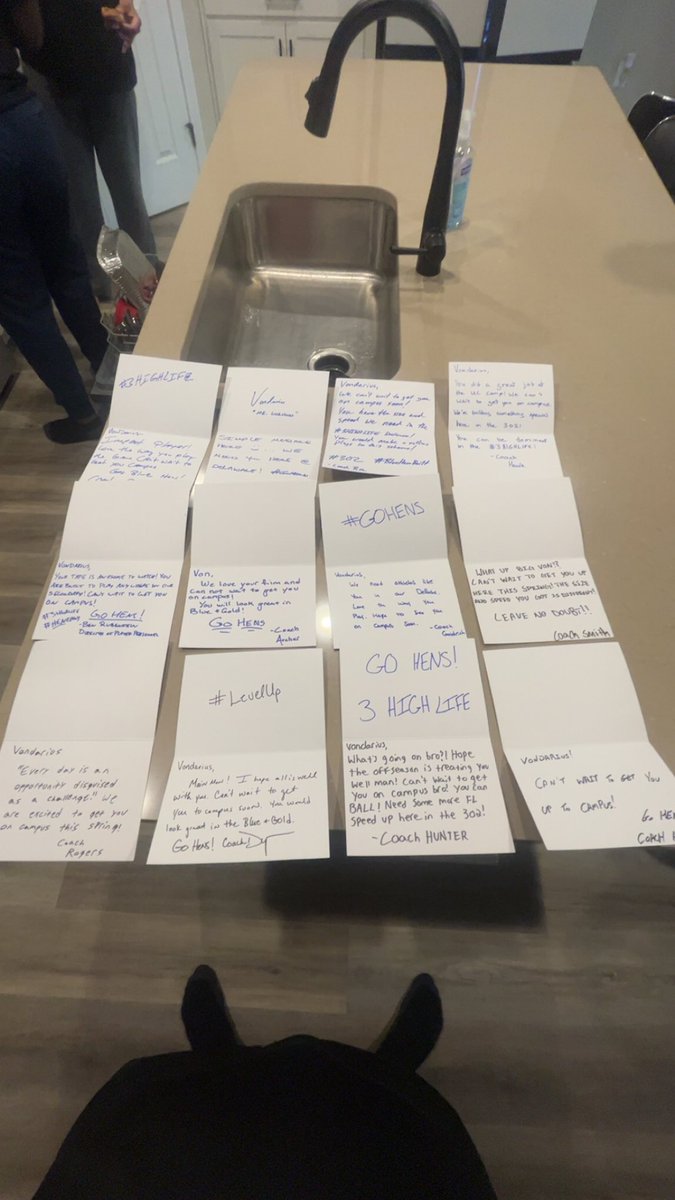 #3HIGHLIFE
Vondarius,
Impact Player!
Love the way you play
the Game. Can't wait to
get you Campus
Go Blue Hens!
Vondarius
NEED YOU HERE @
DELAWARE!
Vondarius,
We can't wait to get you
on campus soon!
You have the size and
speed we need in the
You would make a
#302
Vondarius,
You did a great job at
the camp! We can't
wait to get you on campus.
We're building something special
here in the 302!
You can be
#3HIGHLIFE!
-Coach
VONDARIUS,
YOUR TAPE IS AWESOME TO WATCH! YOU
ARE BUILT TO PLAY AND WORK IN OUR
SECONDARY! CAN'T WAIT TO GET YOU
ON CAMPUS!
#3HIGHLIFE
GO HENS!
- BEN
DIRECTOR OF PLAYER PERSONNEL
Von,
We love your film and
can not wait to get you
on campus!
You will look great in
Blue & Gold!
GO HENS
-Coach
Archer
#GOHENS
Vondarius,
We need athletes like
You in our Defense
Love the way you
Play. Hope to See you
on Campus Soon.
-Coach
WHAT UP BIG VON!?
CAN'T WAIT TO GET YOU UP
HERE THIS SPRING! THE SIZE
AND SPEED YOU GOT IS DIFFERENT!
LEAVE NO DOUBT!!
COACH SMITH
Vondarius
"Every day is an
opportunity disguised
as a challenge." We
are excited to get you
on campus this spring!
Coach
Rogers
#LevelUp
Vondarius,
Main Man! I hope all is well
with you. Can't wait to get
you to campus soon. You would
look great in the Blue & Gold.
Go Hens! Coach
GO HENS!
3 HIGH LIFE
Vondarius,
What's going on bro?! Hope
the offseason is treating you
well man! Can't wait to get
you on campus bro! You can
BALL! Need some more FL
speed up here in the 302!
-Coach HUNTER
VONDARIUS!
CAN'T WAIT TO GET YOU
UP TO CAMPUS!
GO HE
COACH